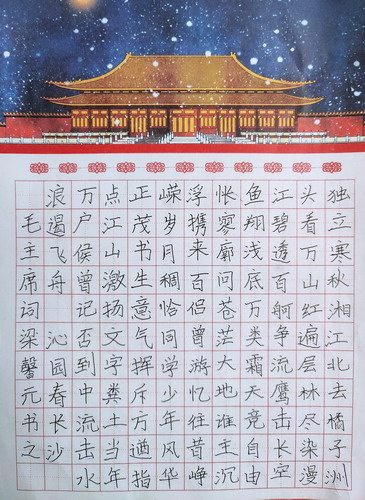 独立寒秋湘江北去橘子洲
头看万山红遍层林尽染漫
江碧透百舸争流鹰击长空
鱼翔浅底万类霜天竞自由
怅寥廓问苍茫大地谁主沉
浮携来百侣曾游忆往昔峥
嵘岁月稠恰同学少年风华
正茂书生意气挥斥方遒指
点江山激扬文字粪土当年
万户侯曾记否到中流击水
浪遏飞舟 沁园春长沙
毛主席词梁馨元书之